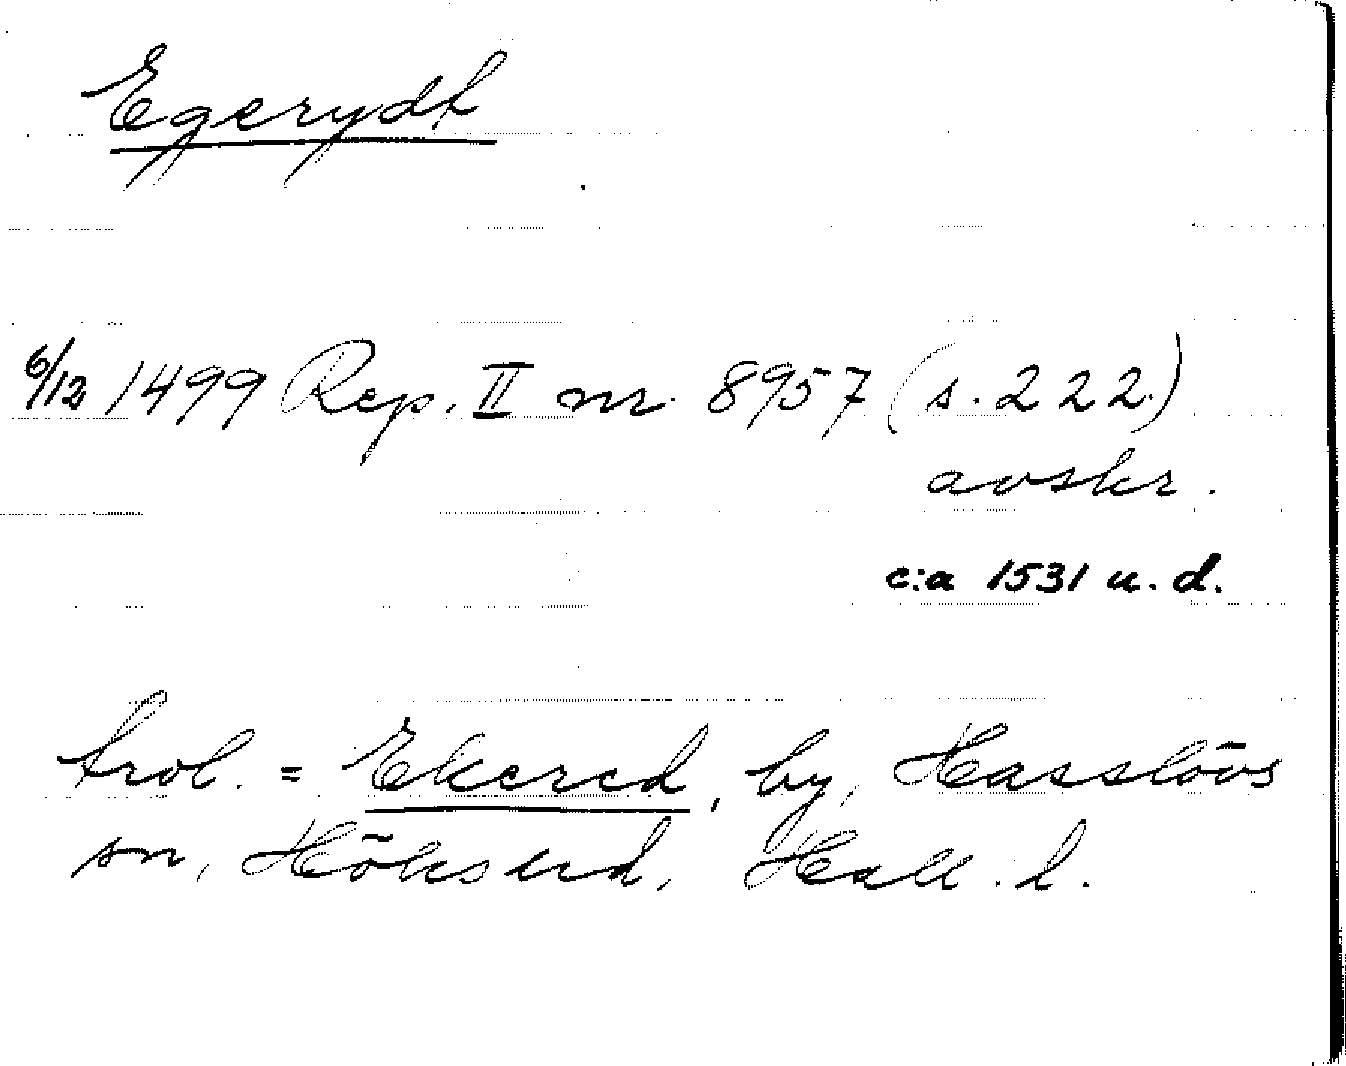 Egerydt
6/12 1499 Rep. II nr. 8957 (s. 222)
avskr.
c:a 1531 u. d.
trol. = Ekered, by, Hasslövs
sn, Höks hd, Hall. l.